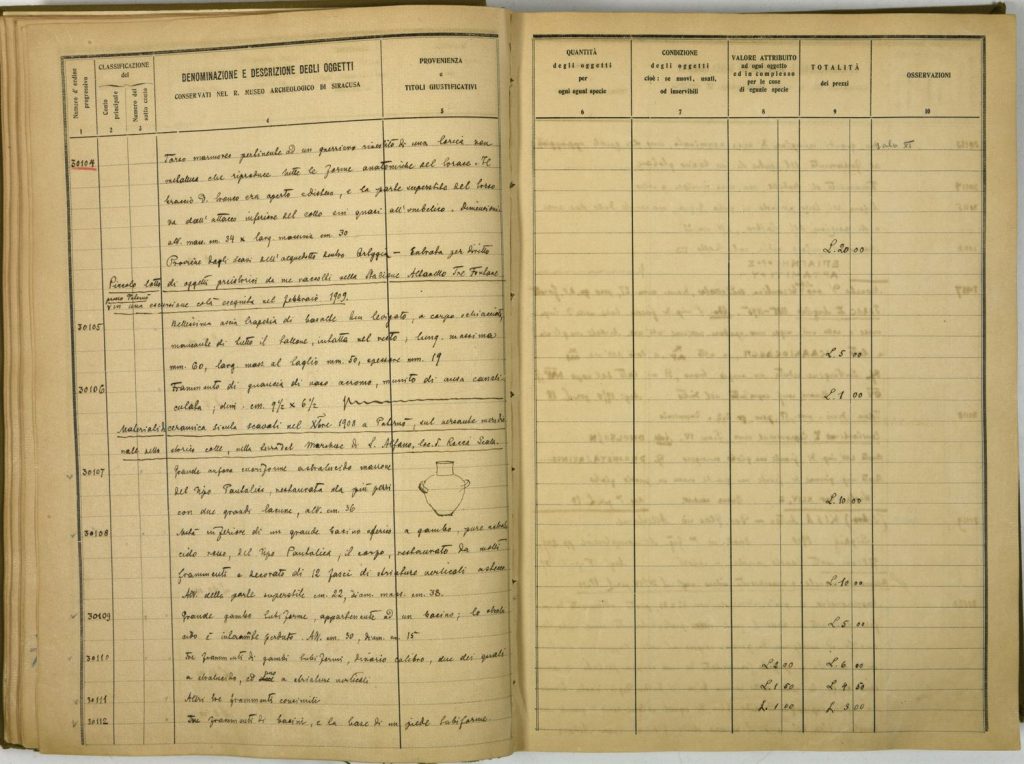 Numero d'ordine progressivo
CLASSIFICAZIONE del
Conto principale
Numero del sotto conto
DENOMINAZIONE E DESCRIZIONE DEGLI OGGETTI
CONSERVATI NEL R. MUSEO ARCHEOLOGICO DI SIRACUSA
PROVENIENZA
e
TITOLI GIUSTIFICATIVI
1 2 3 4 5
30104
Torso marmoreo pertinente ad un guerriero rivestito di una lorica non
che riproduce tutte le forme anatomiche del torace. Il
braccio D. era aperto e disteso, e la parte superstite del torso
va dall'attacco inferiore del collo sin quasi all'ombelico. Dimensioni
alt. mass. cm. 34 x larg. massima cm. 30
Proviene dagli scavi dell'acquedotto dentro Ortygia – Entrata per diritto
Piccolo lotto di oggetti preistorici da me raccolti nella Stazione Tre Fontane
presso Paternò
in una escursione colà eseguita nel febbraio 1909.
30105
Bellissima ascia trapezia di basalte ben levigato, a corpo schiacciato,
mancante di tutto il tallone, intatta nel resto; lung. massima
mm. 60, larg. mass. al taglio mm. 50, spessore mm. 19
30106
Frammento di guancia di vaso, munito di ansa canali-
culata; dim. cm. 9½ x 6½
Materiali di ceramica sicula scavati nel Xbre 1908 a Paternò, sul versante meridio-
nale dello storico colle, nella del Marchese di S. Alfano, loc. d.
30107
Grande anfora cuoriforme ad stralucido marrone
del tipo Pantalica, restaurata da più pezzi
con due grandi lacune, alt. cm. 36
30108
Metà inferiore di un grande bacino sferico a gambo, pure ad stralu-
cido rosso, del tipo Pantalica; il corpo, restaurato da molti
frammenti e decorato di 12 fasci di striature verticali a stecca
Alt. della parte superstite cm. 22, diam. mass. cm. 38.
30109
Grande gambo tubiforme, appartenente ad un bacino; lo stralu-
cido è intieramente perduto. Alt. cm. 30, diam. cm. 15
30110
Tre frammenti di gambi tubiformi, di vario calibro, due dei quali
a stralucido, ed uno a striature verticali
30111
Altri tre frammenti consimili
30112
Tre frammenti di bacini, e la base di un piede tubiforme.
QUANTITÀ
degli oggetti
per
ogni egual specie
CONDIZIONE
degli oggetti
cioè: se nuovi, usati,
od inservibili
VALORE ATTRIBUITO
ad ogni oggetto
ed in complesso
per le cose
di eguale specie
TOTALITÀ
dei prezzi
OSSERVAZIONI
6 7 8 9 10
L. 20 00
L. 5 00
L. 1 00
L. 10 00
L. 10 00
L. 5 00
L. 2 00 L. 6 00
L. 1 50 L. 4 50
L. 1 00 L. 3 00